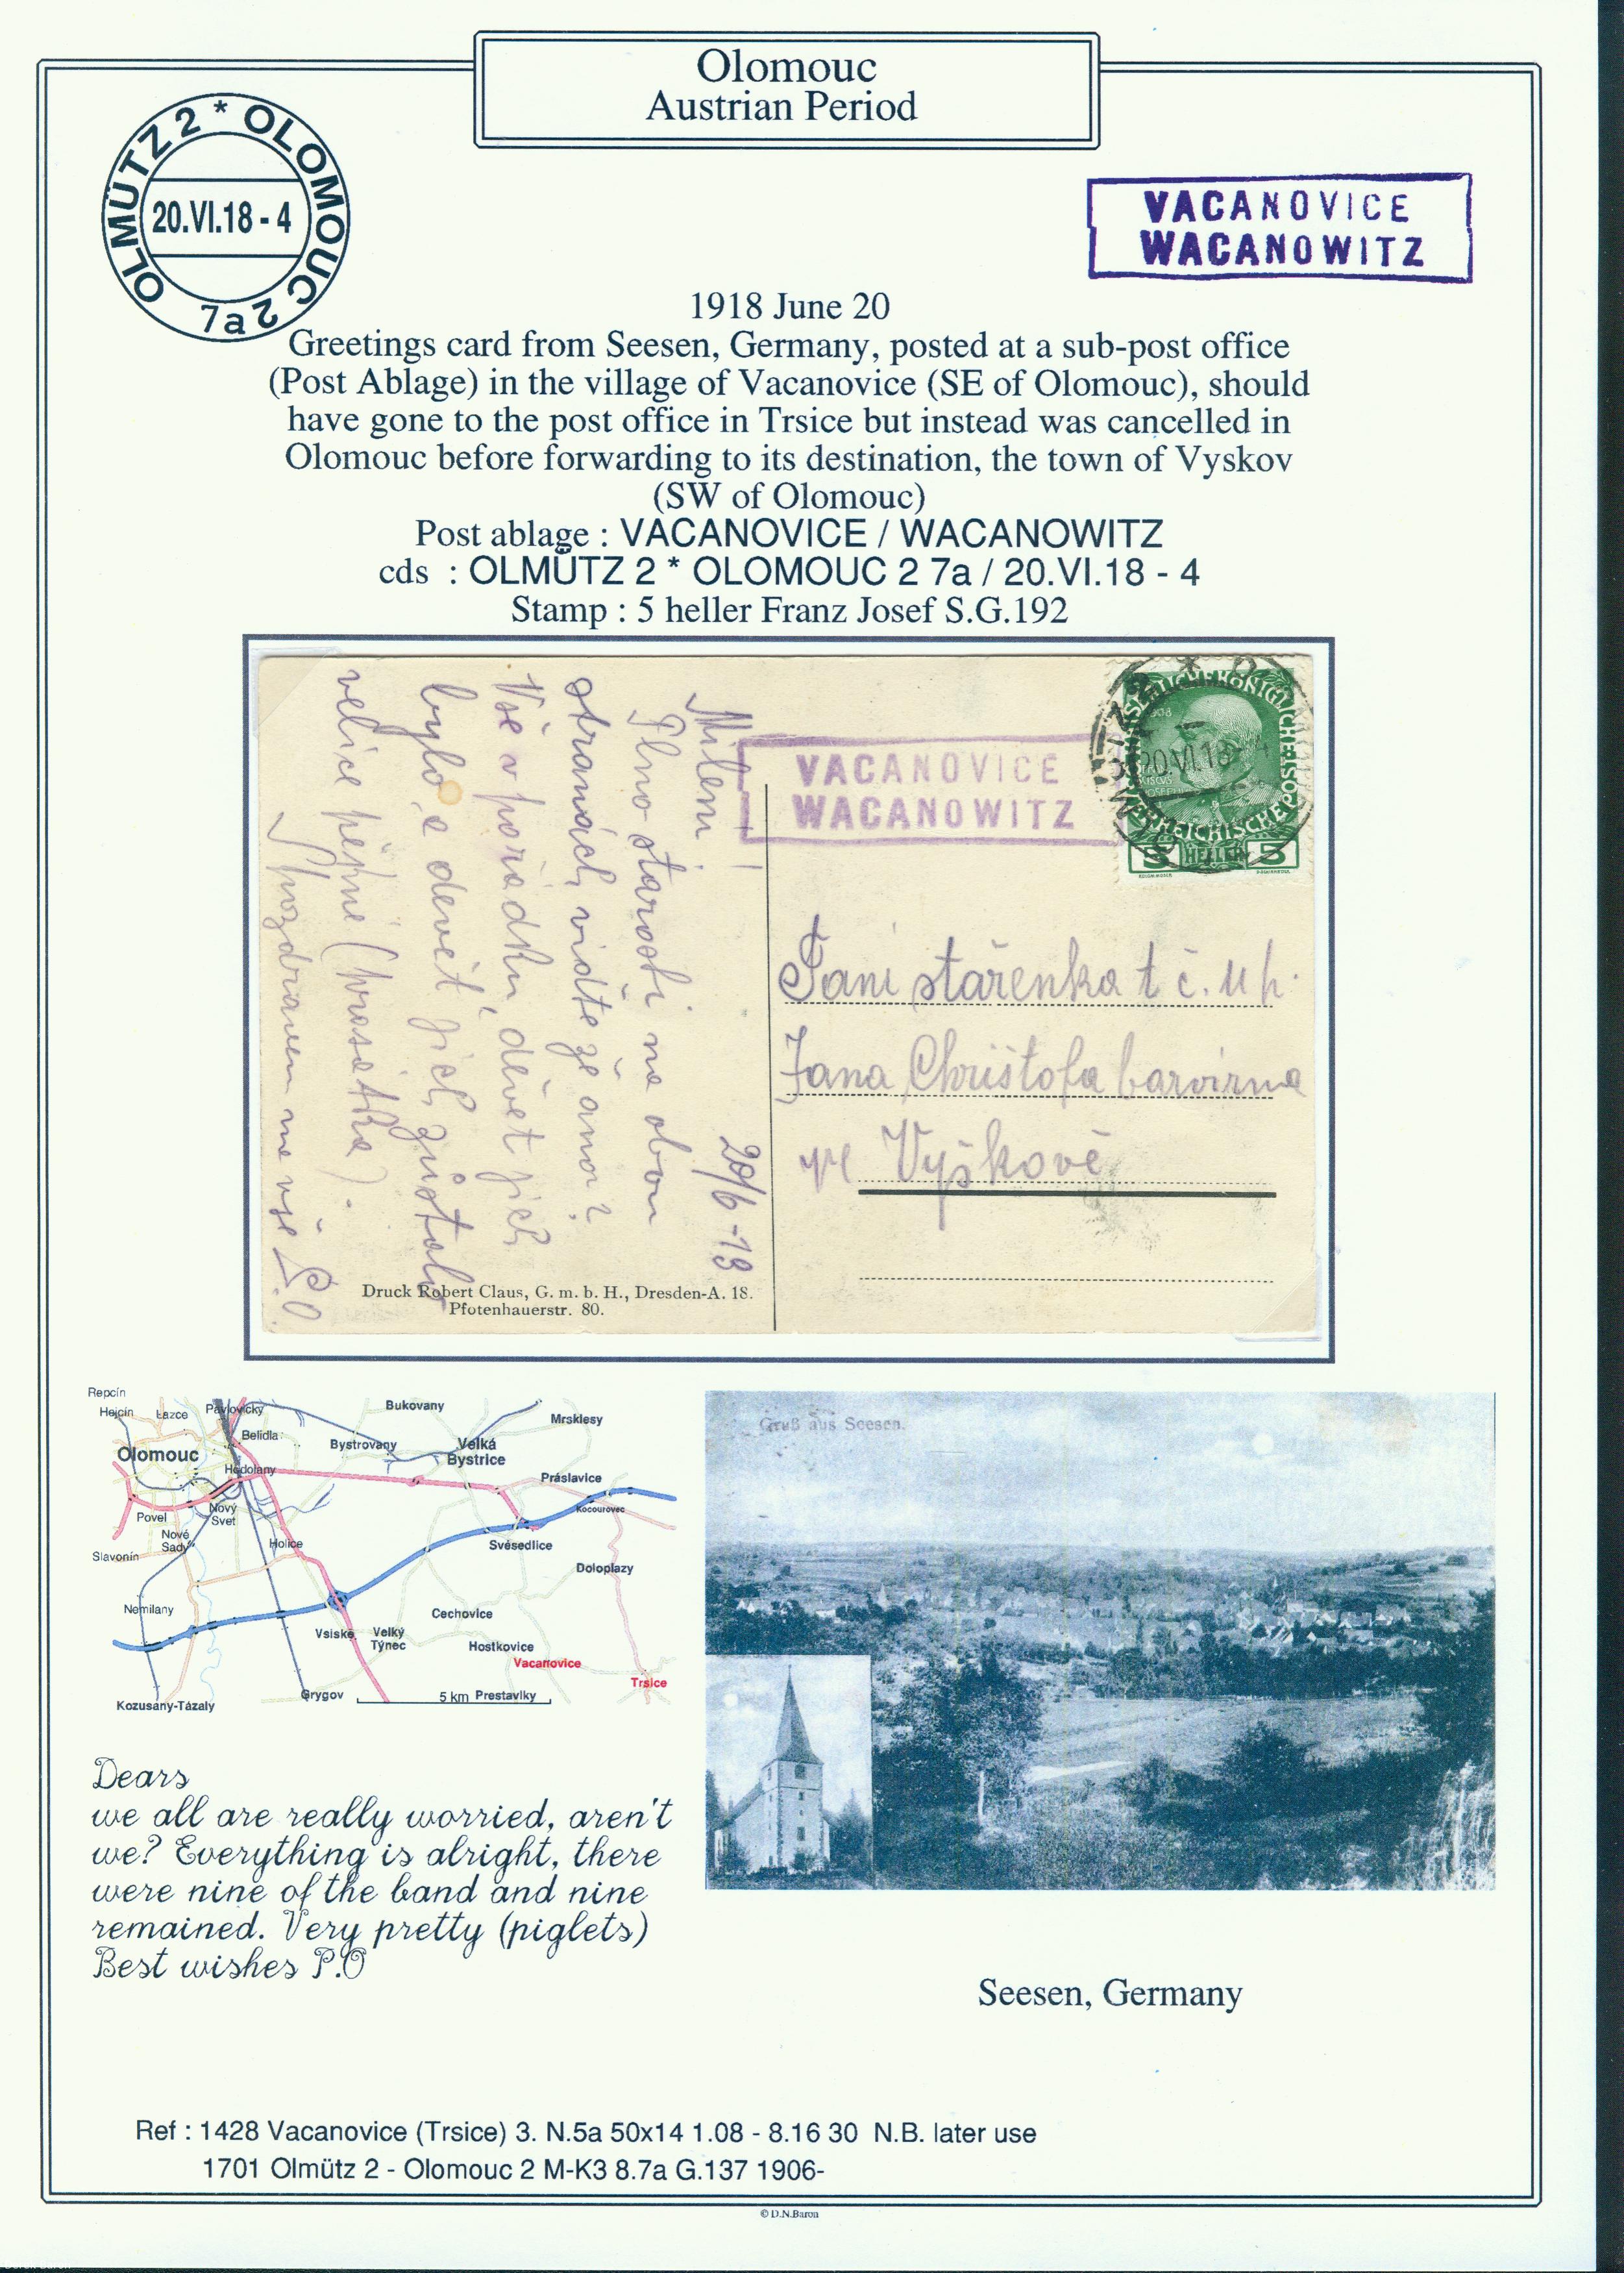 Olomouc
Austrian Period
OLMÜTZ 2 * OLOMOUC 2
20.VI.18 - 4
7a
VACANOVICE
WACANOWITZ
1918 June 20
Greetings card from Seesen, Germany, posted at a sub-post office
(Post Ablage) in the village of Vacanovice (SE of Olomouc), should
have gone to the post office in Trsice but instead was cancelled in
Olomouc before forwarding to its destination, the town of Vyskov
(SW of Olomouc)
Post ablage : VACANOVICE / WACANOWITZ
cds : OLMÜTZ 2 * OLOMOUC 2 7a / 20.VI.18 - 4
Stamp : 5 heller Franz Josef S.G.192
VACANOVICE
WACANOWITZ
20.VI.18 - 4
5 HELLER 5
Paní stařenka t č. u p.
Jana Christofa barvírna
ve Vyškově
20/6 - 18
Milení!
Plno starosti na obou
stranách, vidte že ano?
Vše v pořádku, devět jich
bylo a devět jich zůstalo
velice pěkné (prasátka).
S pozdravem na vše P.O.
Druck Robert Claus, G. m. b. H., Dresden-A. 18.
Pfotenhauerstr. 80.
Repcín
Hejcín
Lazce
Pavlovicky
Bukovany
Mrsklesy
Belidla
Bystrovany
Velká
Bystrice
Olomouc
Hodolany
Práslavice
Kocourovec
Povel
Nový
Svet
Nové
Sady
Holice
Svésedlice
Slavonín
Doloplazy
Nemilany
Cechovice
Vsiske
Velký
Týnec
Hostkovice
Vacanovice
Trsice
Kozusany-Tázaly
Grygov
5 km
Prestavlky
Gruß aus Seesen.
Dears
we all are really worried, aren't
we? Everything is alright, there
were nine of the band and nine
remained. Very pretty (piglets)
Best wishes P.O
Seesen, Germany
Ref : 1428 Vacanovice (Trsice) 3. N.5a 50x14 1.08 - 8.16 30 N.B. later use
1701 Olmütz 2 - Olomouc 2 M-K3 8.7a G.137 1906-
© D.N.Baron